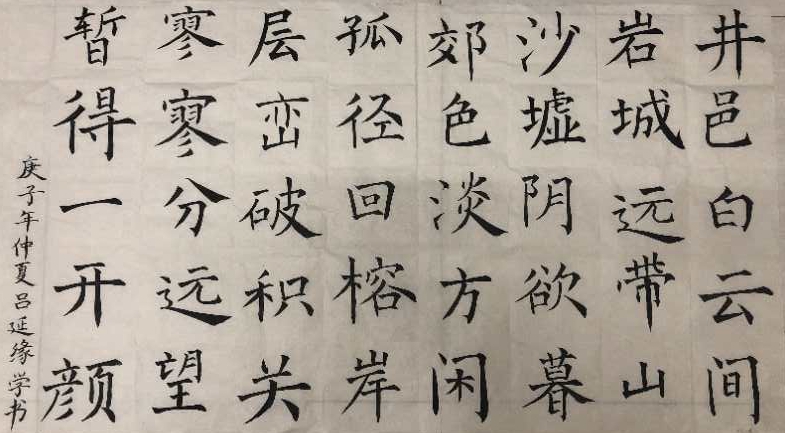 井邑白云间
岩城远带山
沙墟阴欲暮
郊色淡方闲
孤径回榕岸
层峦破积关
寥寥分远望
暂得一开颜
庚子年仲夏吕延缘学书